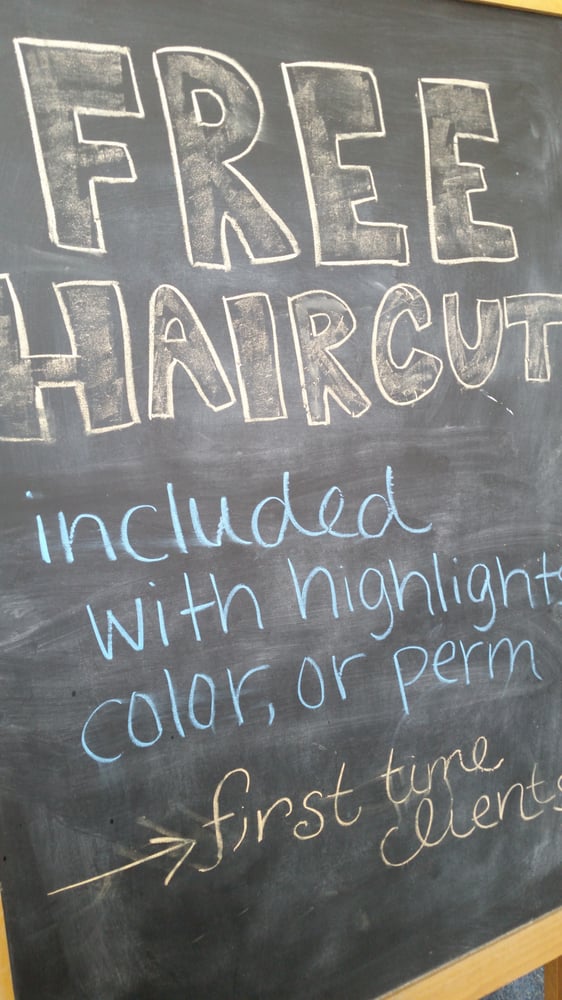 FREE
HAIRCUT
included
with highlights
color, or perm
first time
clients